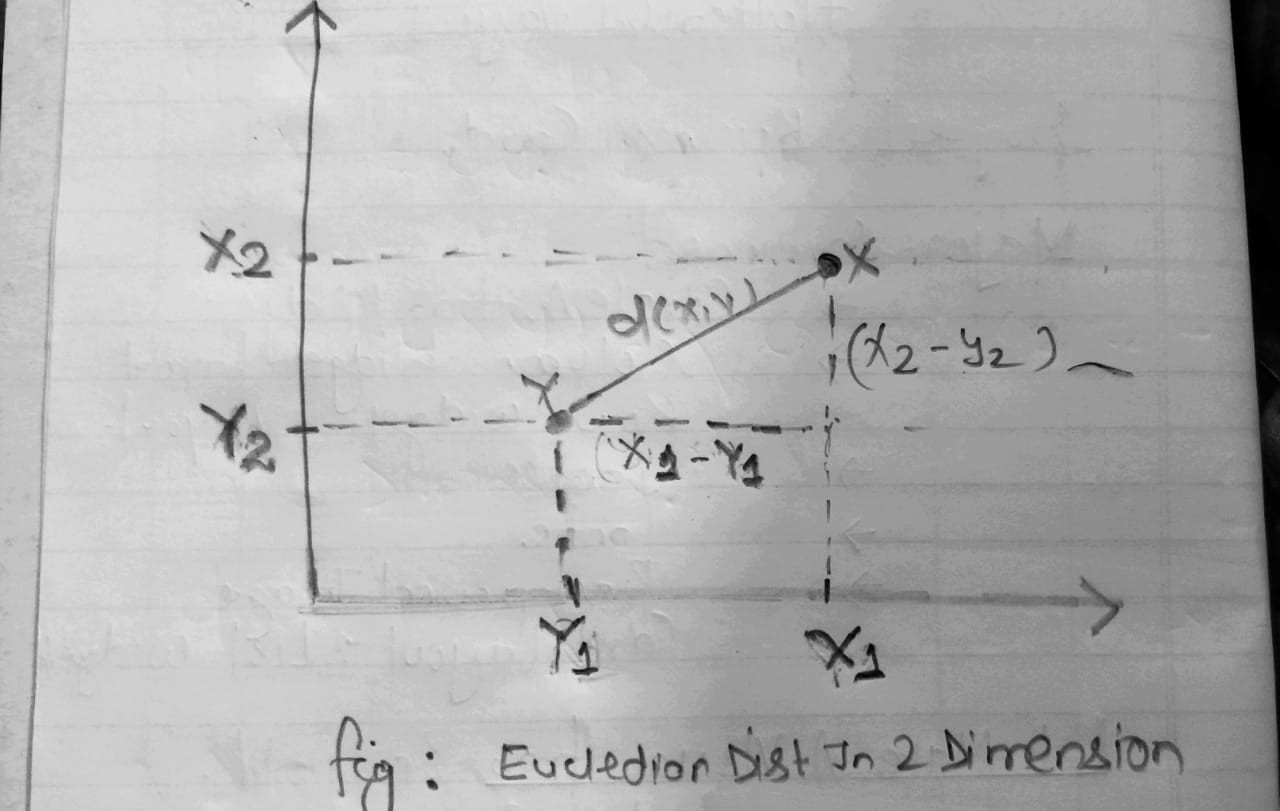 X2
X
d(x,y)
(X2-y2)
Y
Y2
(X1-Y1
Y1
X1
fig: Eucledian Dist In 2 Dimension